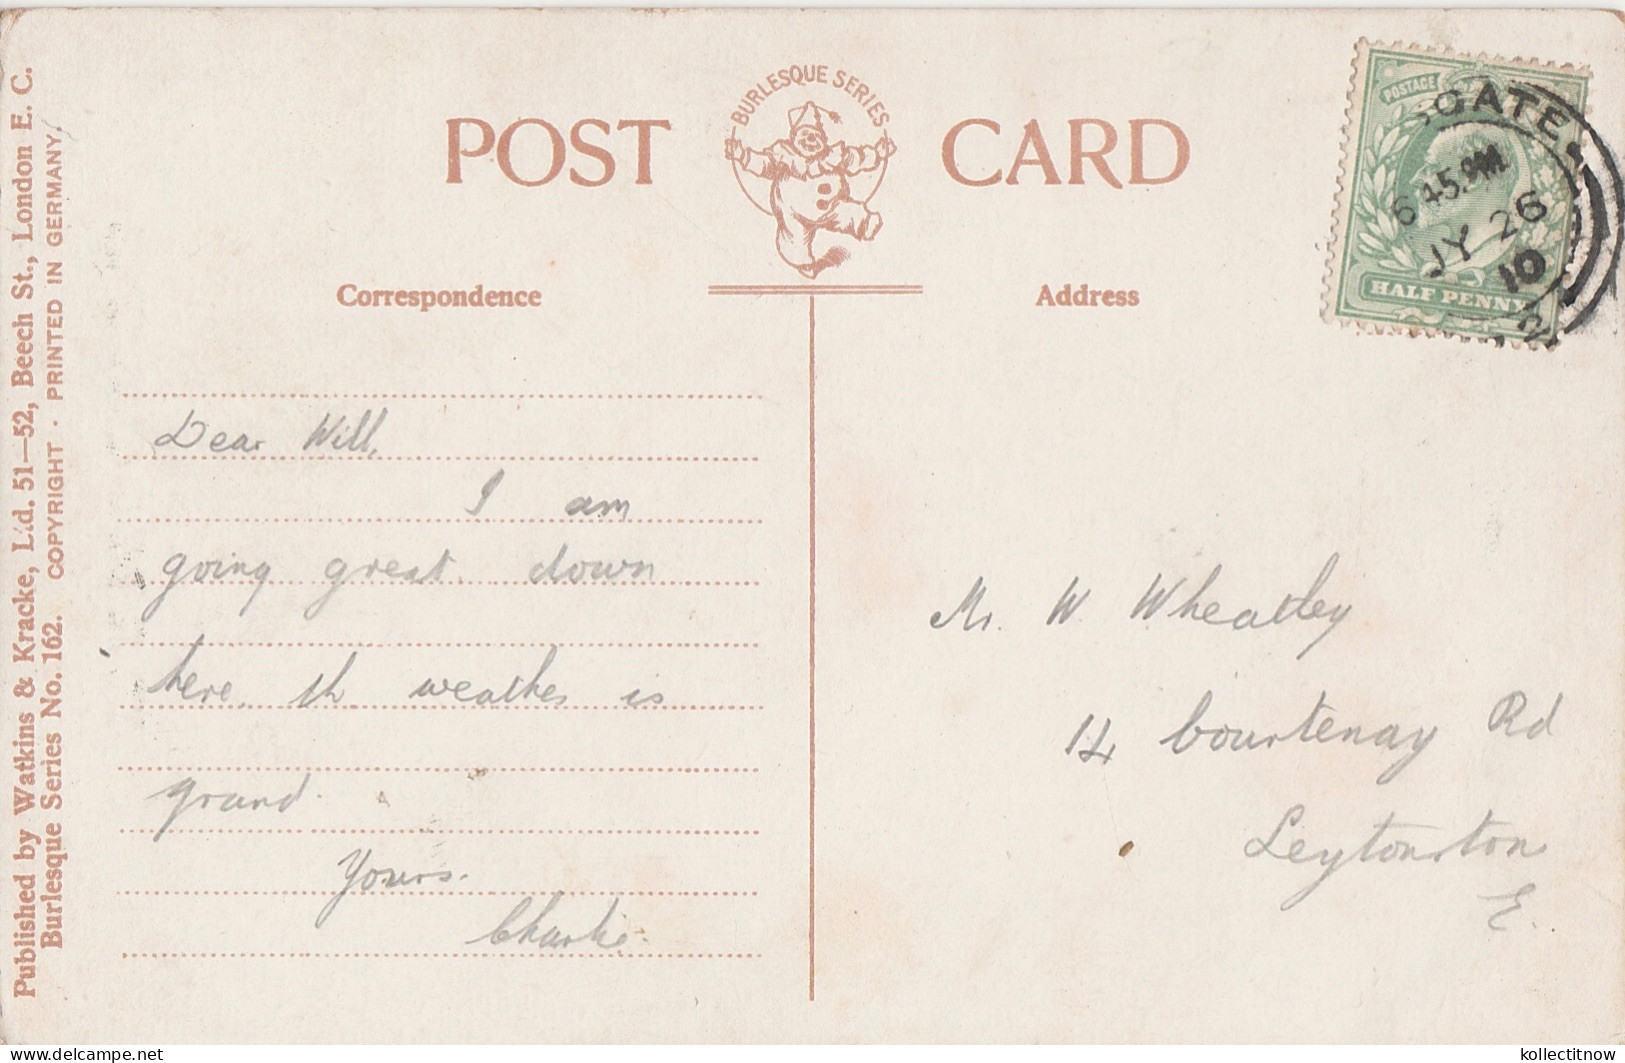 BURLESQUE SERIES
POST CARD
Correspondence
Address
Dear Will,
I am
going great down
here. th weather is
grand.
Yours.
Charlie.
Mr. W. Wheatley
14 Courtenay Rd
Leytonstone
E.
POSTAGE
GATE
6 45.PM
JY 26
10
2
HALF PENNY
Published by Watkins & Kracke, Ltd. 51—52, Beech St., London E. C.
Burlesque Series No. 162. COPYRIGHT · PRINTED IN GERMANY.
delcampe.net
kollectitnow